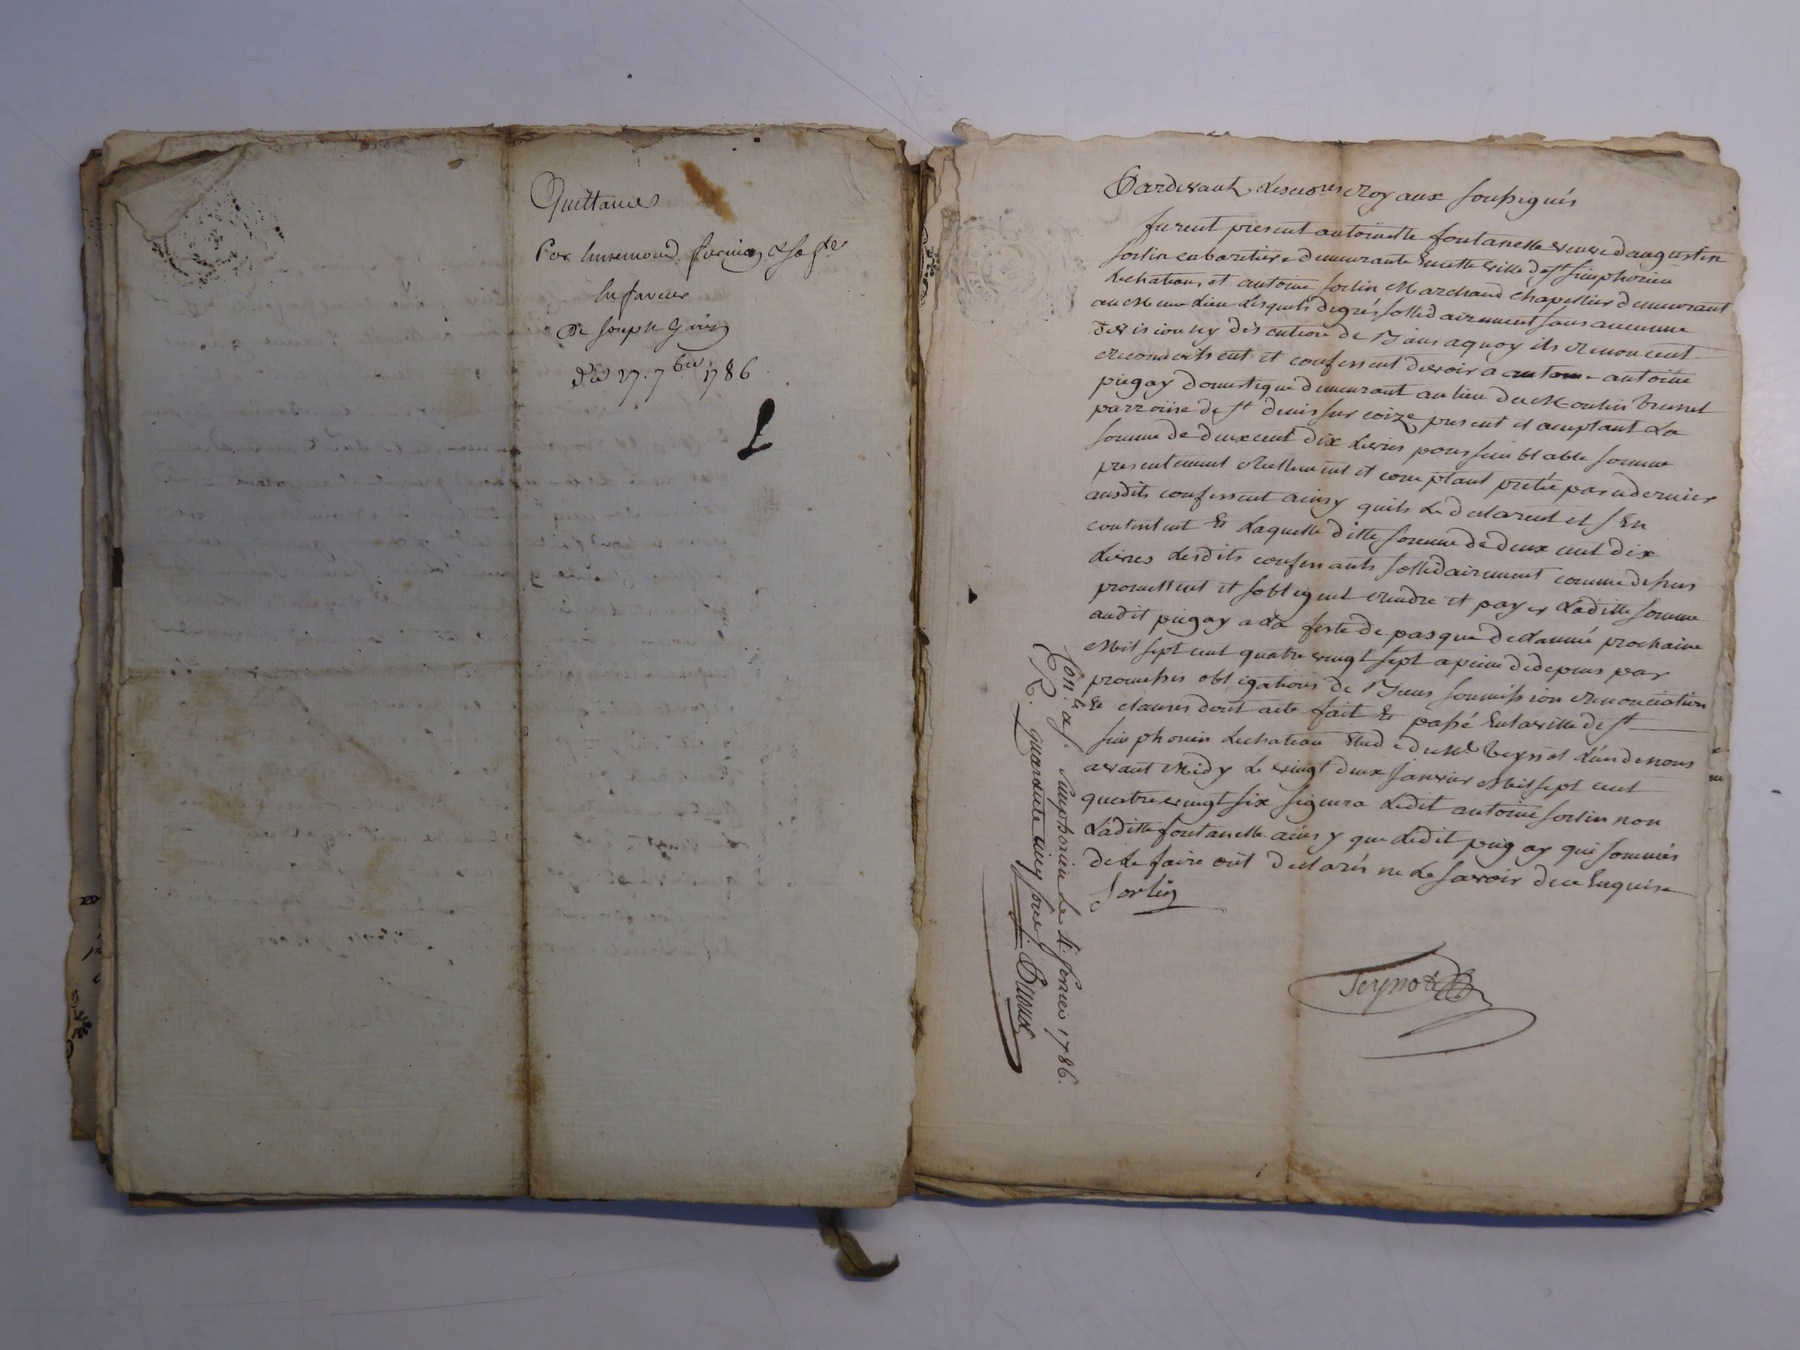 Quittance
Par
En faveur
De Joseph
Du 27. 7bre 1786
Pardevant Les no.res Royaux soussignés
furent present antoinette fontanelle veuve d'augustin
sorlin cabaretiere demeurante En cette ville de st simphorien
Lechateau, et antoine sorlin Marchand Chapellier demeurant
au Meme Lieu Lesquels de gré solledairement sans aucunne
division ny discution de Biens a quoy ils Renoncent
Reconnoissent et confessent devoir a antoine
pingay domestique demeurant au lieu du Moulin Brunel
parroisse de st denis sur coize present et acceptant La
somme de deux cent dix Livres pour semblable somme
presentement Reellement et comptant pretée par ce dernier
ausdits confessent ainsy quils Le declarent et s'En
contentent Et Laquelle ditte somme de deux cent dix
Livres Lesdits confessants solledairement comme dessus
promettent et sobligent Rendre et payer Laditte somme
audit pingay a La feste de pasque de Lannée prochaine
Mil sept cent quatre vingt sept a peine de depens par
promesses obligations de Biens soumission Renonciation
Et clauses dont acte fait Et passé En la ville de st
simphorien Lechateau Etude de Me Teynot L'un de nous
avant Midy Le vingt deux janvier Mil sept cent
quatre vingt six signera Ledit antoine sorlin non
Laditte fontanelle ainsy que Ledit pingay qui sommés
de Le faire ont declarés ne Le savoir de ce Enquis
Sorlin
Teynot
Con.lé a st. Simphorien Le 4. fevrier 1786.
R. quarante cinq sous.